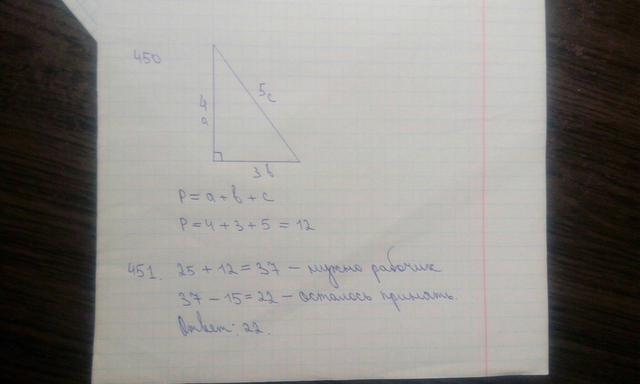 450
4
a
5
c
3 b
P = a + b + c
P = 4 + 3 + 5 = 12
451. 25 + 12 = 37 – нужно рабочих
37 – 15 = 22 – осталось принять.
Ответ: 22.